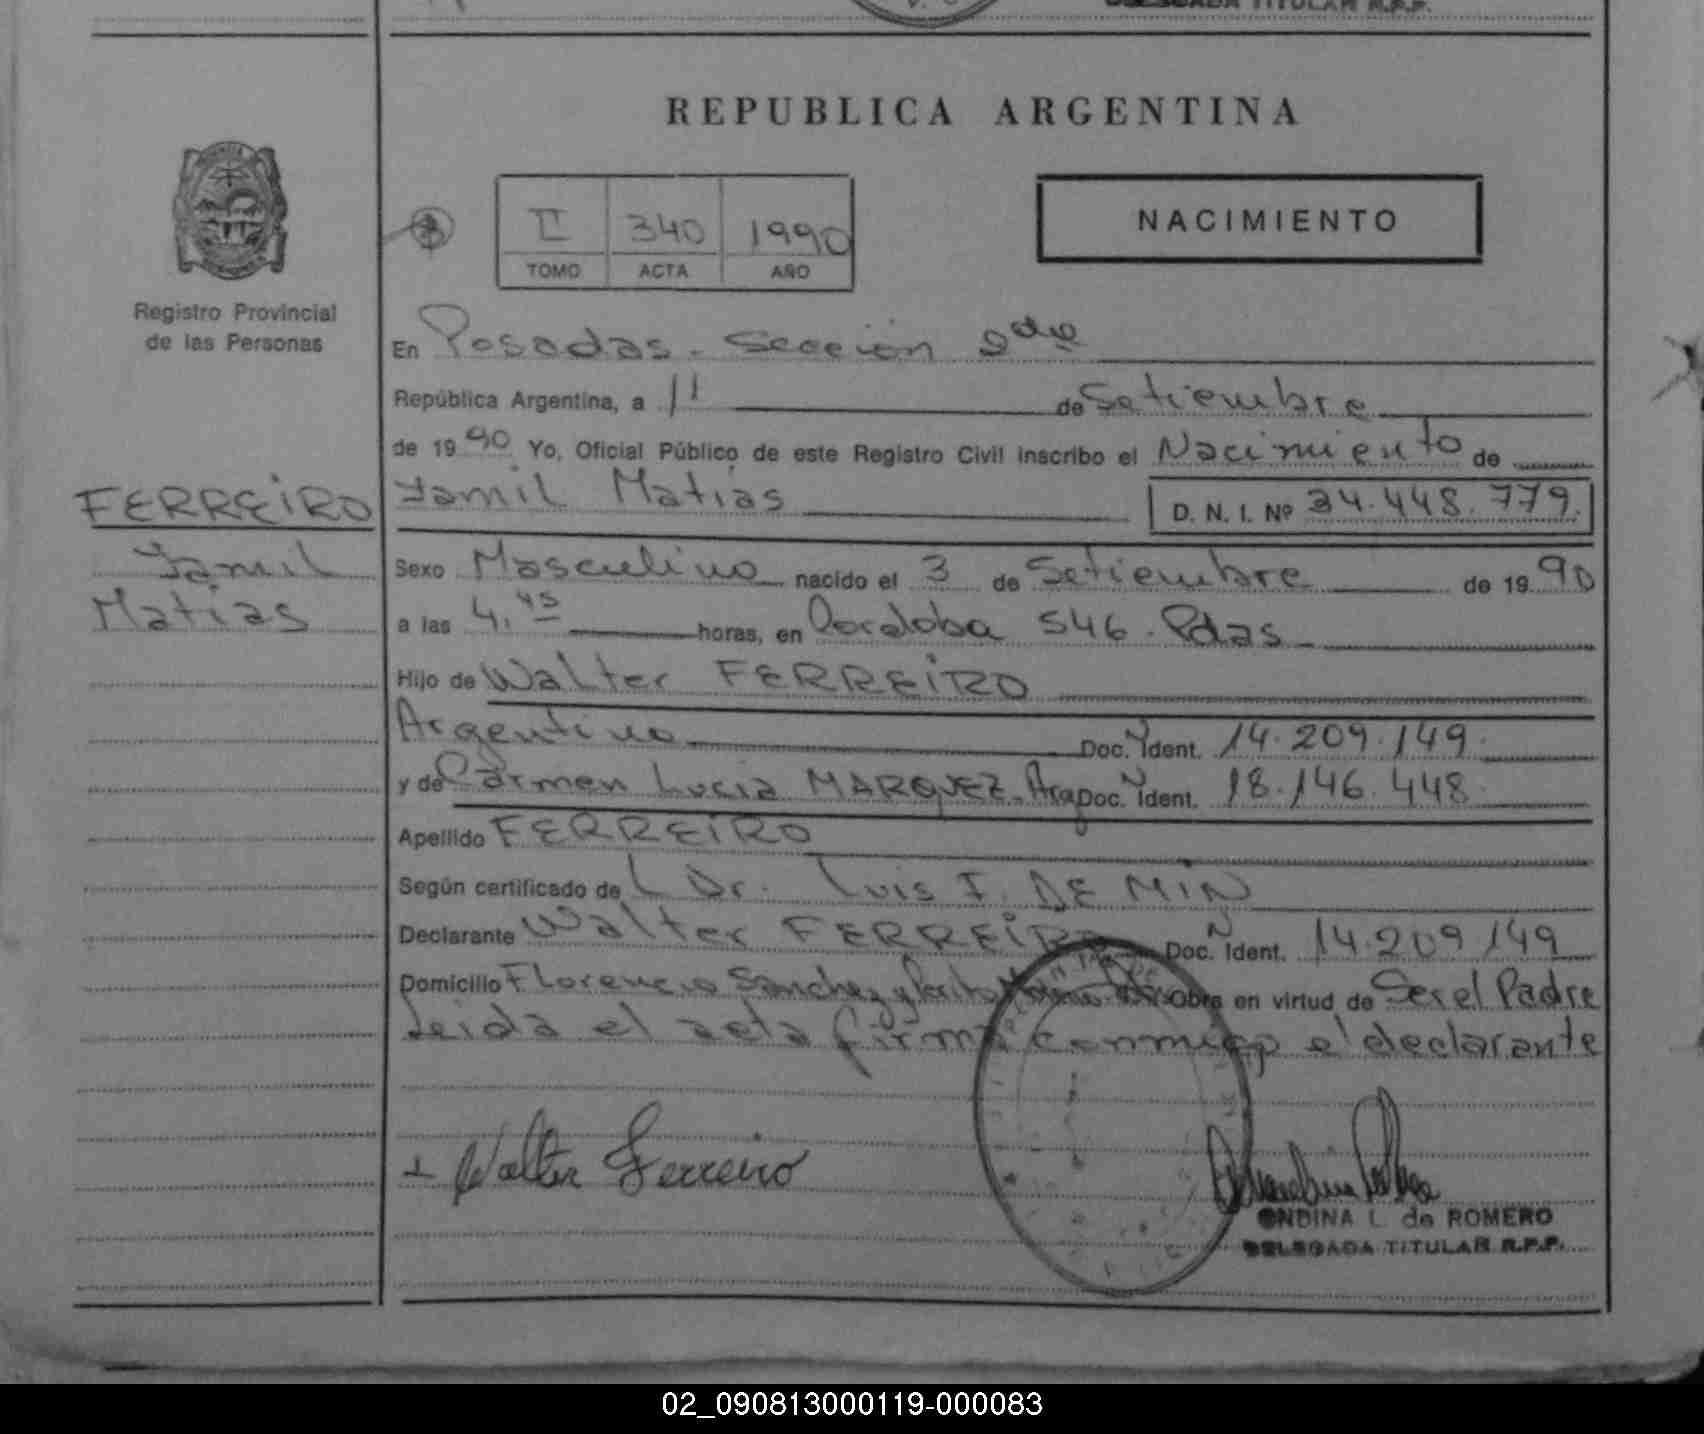 DELEGADA TITULAR R.P.P.
REPUBLICA ARGENTINA
NACIMIENTO
II 340 1990
TOMO ACTA AÑO
Registro Provincial
de las Personas
En Posadas. Sección 2da
República Argentina, a 11 de Setiembre
de 1990 Yo, Oficial Público de este Registro Civil inscribo el Nacimiento de
FERREIRO
Yamil
Matías
Yamil Matías D. N. I. Nº 34.448.779.
Sexo Masculino nacido el 3 de Setiembre de 1990
a las 4,45 horas, en Cordoba 546. Pdas
Hijo de Walter FERREIRO
Argentino Doc. N Ident. 14.209.149.
y de Carmen Lucia MARQUEZ. Arg Doc. N Ident. 18.146.448.
Apellido FERREIRO
Según certificado de L Dr. Luis F. DE MIN
Declarante Walter FERREIRO Doc. N Ident. 14.209.149
Domicilio Florencio Sanchez y Obra en virtud de Ser el Padre
Leida el acta firma conmigo el declarante
Walter Ferreiro
ONDINA L. de ROMERO
DELEGADA TITULAR R.P.P.
02_090813000119-000083